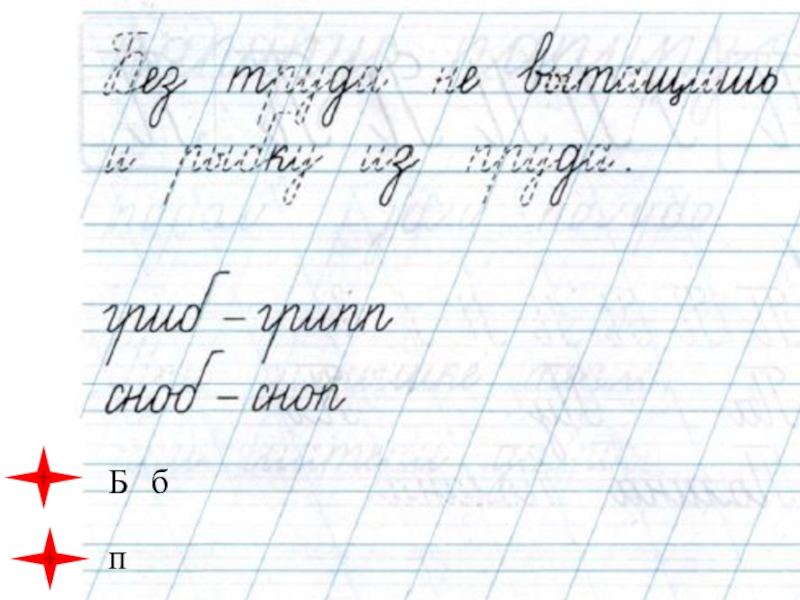 Без труда не вытащишь
и рыбку из пруда.
гриб – грипп
сноб – сноп
Б б
п